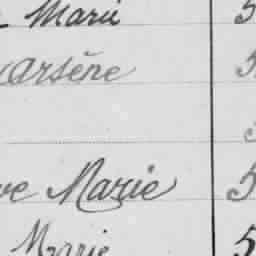 Marie 5
Arsène 5
ve Marie 5
Marie 5